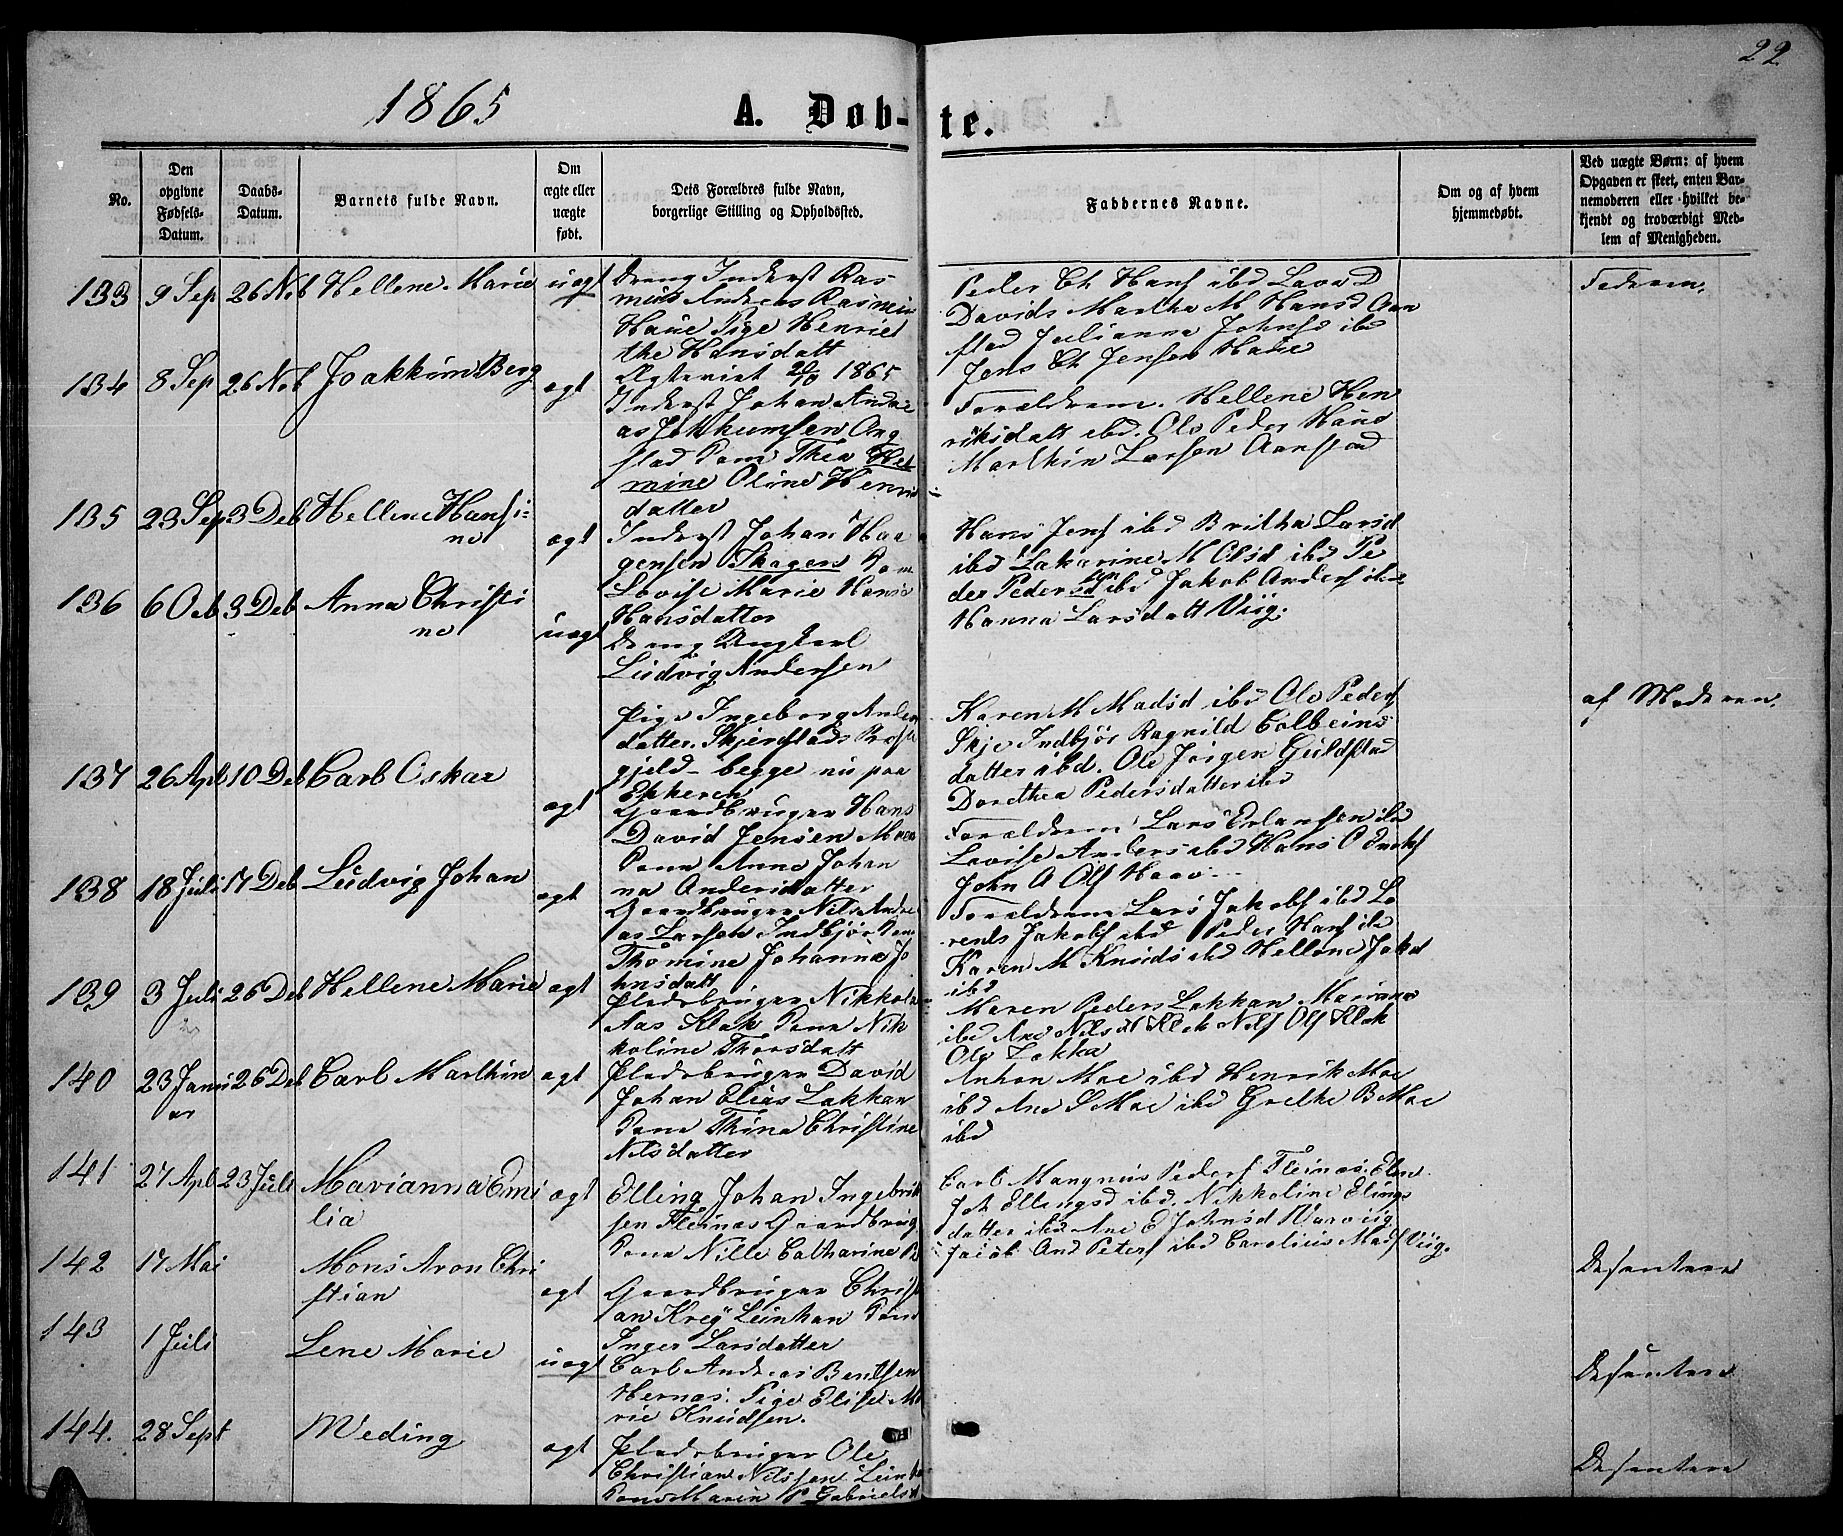 22
1865
A. Døb-
te.
No.
Den
opgivne
Fødsels-
Datum.
Daabs-
Datum.
Barnets fulde Navn.
Om
ægte eller
uægte
født.
Dets Forældres fulde Navn,
borgerlige Stilling og Opholdsted.
Faddernes Navne.
Om og af hvem
hjemmedøbt.
Ved uægte Børn: af hvem
Opgaven er skeet, enten Bar-
nemoderen eller hvilket be-
kjendt og troværdigt Med-
lem af Menigheden.
133 9 Sep 26 Nob Hellene Marie uegt
Dreng Inderst Ras
mus Andreas Rasmus
Haue Pige Henriet
the Hansdatt
Peder Ch Hans ibd Lava D
Davids Martha M Hansd Aan
stad Julianna Johnsd ibd
Jens Ch Jensen Haue
Faderen.
134 8 Sep 26 Nob Joakkim Berg egt
Ægteviet 20/10 1865
Inderst Johan Andre
as Jokkumsen Ang
stad Kone Thea Hel
mine Oline Henriks
datter
Forældrene. Hellene Hen
riksdatt ibd. Ole Peder Hans
Marthin Larsen Aanstad
135 23 Sep 3 Deb Hellene Hansi-
ne
egt
Inderst Johan Haa
gensen Skagen Kone
Lovise Marie Hans
Hansdatter
Hans Jens ibd Britha Larsd
ibd Lakarine M Olsd ibd Pe
der Pedersen ibd Jakob Anders ibd
Hanna Larsdatt Viig.
136 6 Ocb 3 Deb Anna Christi
ne
uegt
Dreng Ungkarl
Ludvig Andersen
Pige Ingeborg Anders
datter. Skjerstads Præste
gjeld - begge nu paa
Karen M Madsd ibd Ole Peders
Skje Indbjør Ragnild Colbeins
datter ibd. Ole Jørgen Guldstad
Dorethea Pedersdatter ibd
af Moderen.
137 26 Apl 10 Deb Carl Oskar egt
Gaardbruger Hans
David Jensen
Kone Anne Johan
na Andersdatter
Forældrene Lars Erlansen ibd
Lovise Anders ibd Hans O
John A Ols Haav
138 18 Juli 17 Deb Ludvig Johan egt
Gaardbruger Nils Andre
as Larsen Indbjør Kone
Thomine Johanna Jo
hnsdatt
Forældrene Lars Jakobs ibd Lo
rents Jakobs ibd Peder Hans ibd
Karen M Knuds ibd Hellene Jakob
ibd
139 3 Juli 26 Deb Hellene Marie egt
Pladsbruger Nikkolai
Aas Klak Kone Nik
koline Thorsdatt
Maren Peders Lakkan Mariane
ibd Ane Nilsd Klak Nils Ols Klak
Ole Lakka
140 23 Janu
ar
26 Deb Carl Marthin egt
Pladsbruger David
Johan Elias Lakkan
Kone Thina Christine
Nilsdatter
Anton Moe ibd Henrik Moe
ibd Ane S Moe ibd Grethe B Moe
ibd
141 27 Apl 23 Juli Marianna Emi
lia
egt
Elling Johan Ingebrik
sen Fleinæs Gaardbrug
Kone Nille Catharine P
Carl Mangnus Peders Fleinæs. Elen
Joh Ellingsd ibd. Nikkoline Elings
datter ibd Ane E Johnsd Varviig
Jakob And Peters ibd Carolius Mads Viig.
142 17 Mai Mons Aron Chri
stian
egt
Gaardbruger Christ
an Kreg Leinhan Kone
Inger Larsdatter
Desentere
143 1 Juli Lene Marie uegt
Carl Andreas Bentsen
Hernæs. Pige Elise M
rie Knudsen.
Desentere
144. 28 Sept Meding egt
Pladsbruger Ole
Christian Nilssen
Kone Maren P Gabrielsd
Desentere